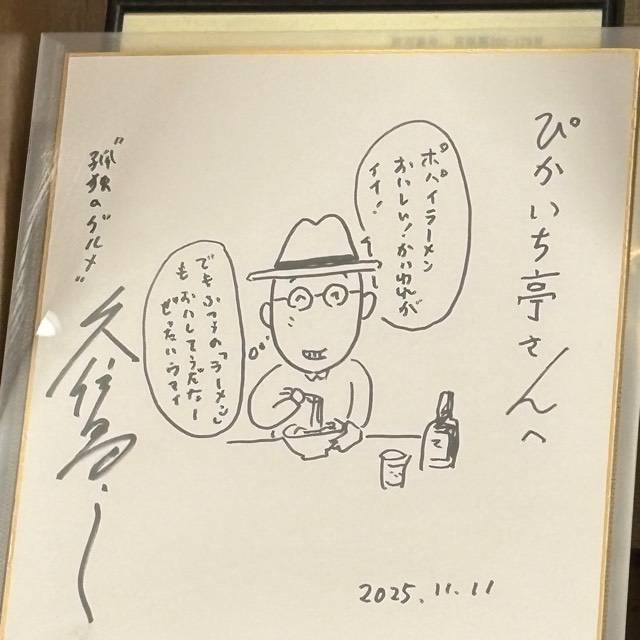 ぴかいち亭さんへ
ポパイラーメン
おいしい!かいわれが
イイ!
でもふつうの「ラーメン」
もおいしそうだなー
ぜったいウマイ
"孤独のグルメ"
久住昌之
2025.11.11